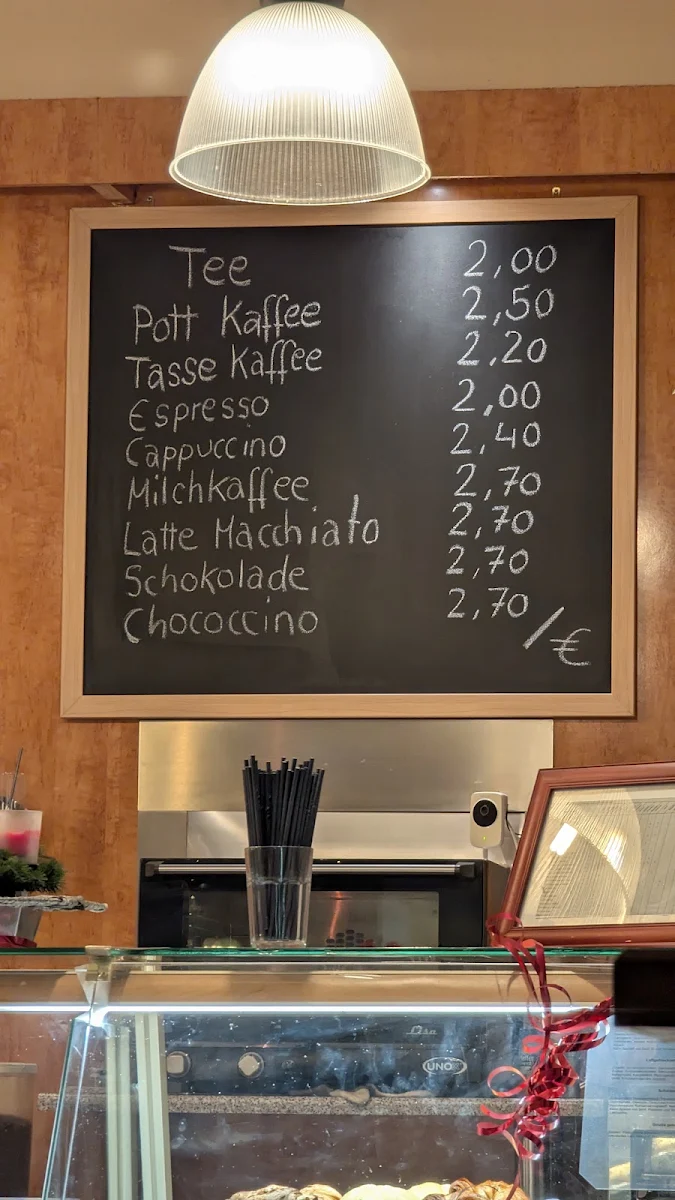 Tee 2,00
Pott Kaffee 2,50
Tasse Kaffee 2,20
Espresso 2,00
Cappuccino 2,40
Milchkaffee 2,70
Latte Macchiato 2,70
Schokolade 2,70
Chococcino 2,70
/€
UNOX